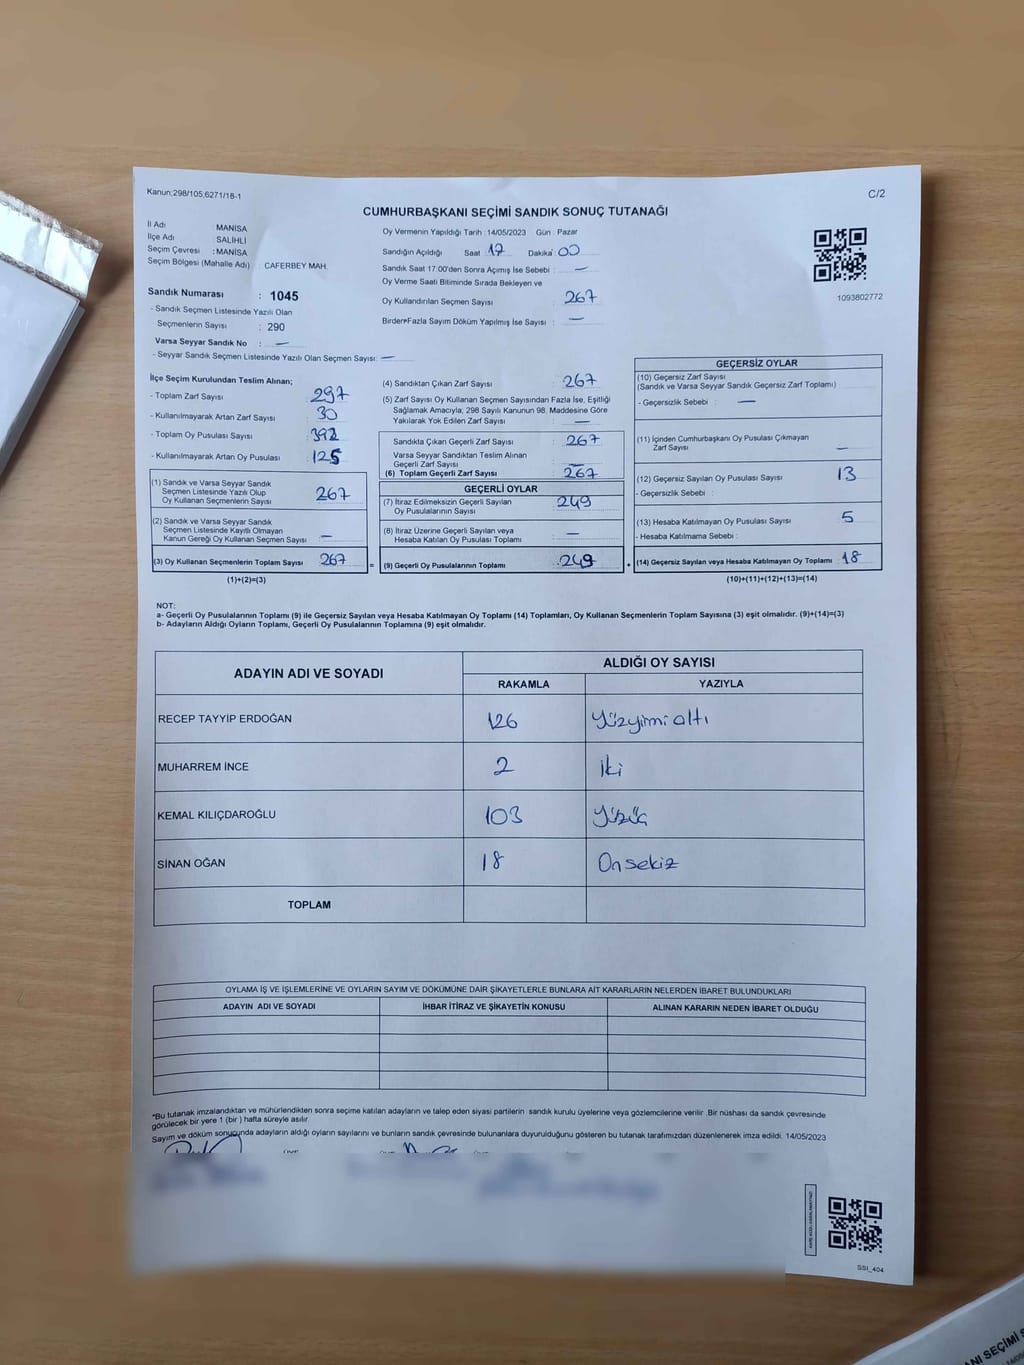 Kanun;298/105,6271/18-1
C/2
CUMHURBAŞKANI SEÇİMİ SANDIK SONUÇ TUTANAĞI
İl Adı : MANİSA
İlçe Adı : SALİHLİ
Seçim Çevresi : MANİSA
Seçim Bölgesi (Mahalle Adı) : CAFERBEY MAH.
Sandık Numarası : 1045
- Sandık Seçmen Listesinde Yazılı Olan
Seçmenlerin Sayısı : 290
Varsa Seyyar Sandık No : —
- Seyyar Sandık Seçmen Listesinde Yazılı Olan Seçmen Sayısı: —
Oy Vermenin Yapıldığı Tarih : 14/05/2023 Gün : Pazar
Sandığın Açıldığı Saat 17 Dakika 00
Sandık Saat 17.00'den Sonra Açımış İse Sebebi : —
Oy Verme Saati Bitiminde Sırada Bekleyen ve
Oy Kullandırılan Seçmen Sayısı : 267
Birden Fazla Sayım Döküm Yapılmış İse Sayısı : —
1093802772
İlçe Seçim Kurulundan Teslim Alınan;
- Toplam Zarf Sayısı : 297
- Kullanılmayarak Artan Zarf Sayısı : 30
- Toplam Oy Pusulası Sayısı : 392
- Kullanılmayarak Artan Oy Pusulası : 125
(1) Sandık ve Varsa Seyyar Sandık
Seçmen Listesinde Yazılı Olup
Oy Kullanan Seçmenlerin Sayısı : 267
(2) Sandık ve Varsa Seyyar Sandık
Seçmen Listesinde Kayıtlı Olmayan
Kanun Gereği Oy Kullanan Seçmen Sayısı : —
(3) Oy Kullanan Seçmenlerin Toplam Sayısı : 267
(1)+(2)=(3)
(4) Sandıktan Çıkan Zarf Sayısı : 267
(5) Zarf Sayısı Oy Kullanan Seçmen Sayısından Fazla İse, Eşitliği
Sağlamak Amacıyla; 298 Sayılı Kanunun 98. Maddesine Göre
Yakılarak Yok Edilen Zarf Sayısı : —
Sandıkta Çıkan Geçerli Zarf Sayısı : 267
Varsa Seyyar Sandıktan Teslim Alınan
Geçerli Zarf Sayısı : —
(6) Toplam Geçerli Zarf Sayısı : 267
GEÇERLİ OYLAR
(7) İtiraz Edilmeksizin Geçerli Sayılan
Oy Pusulalarının Sayısı : 249
(8) İtiraz Üzerine Geçerli Sayılan veya
Hesaba Katılan Oy Pusulası Toplamı : —
= (9) Geçerli Oy Pusulalarının Toplamı : 249
GEÇERSİZ OYLAR
(10) Geçersiz Zarf Sayısı
(Sandık ve Varsa Seyyar Sandık Geçersiz Zarf Toplamı)
- Geçersizlik Sebebi : —
(11) İçinden Cumhurbaşkanı Oy Pusulası Çıkmayan
Zarf Sayısı : —
(12) Geçersiz Sayılan Oy Pusulası Sayısı : 13
- Geçersizlik Sebebi :
(13) Hesaba Katılmayan Oy Pusulası Sayısı : 5
- Hesaba Katılmama Sebebi :
+ (14) Geçersiz Sayılan veya Hesaba Katılmayan Oy Toplamı : 18
(10)+(11)+(12)+(13)=(14)
NOT:
a- Geçerli Oy Pusulalarının Toplamı (9) ile Geçersiz Sayılan veya Hesaba Katılmayan Oy Toplamı (14) Toplamları, Oy Kullanan Seçmenlerin Toplam Sayısına (3) eşit olmalıdır. (9)+(14)=(3)
b- Adayların Aldığı Oyların Toplamı, Geçerli Oy Pusulalarının Toplamına (9) eşit olmalıdır.
ADAYIN ADI VE SOYADI ALDIĞI OY SAYISI
RAKAMLA YAZIYLA
RECEP TAYYİP ERDOĞAN 126 Yüzyirmi altı
MUHARREM İNCE 2 İki
KEMAL KILIÇDAROĞLU 103 Yüzüç
SİNAN OĞAN 18 Onsekiz
TOPLAM
OYLAMA İŞ VE İŞLEMLERİNE VE OYLARIN SAYIM VE DÖKÜMÜNE DAİR ŞİKAYETLERLE BUNLARA AİT KARARLARIN NELERDEN İBARET BULUNDUKLARI
ADAYIN ADI VE SOYADI İHBAR İTİRAZ VE ŞİKAYETİN KONUSU ALINAN KARARIN NEDEN İBARET OLDUĞU
*Bu tutanak imzalandıktan ve mühürlendikten sonra seçime katılan adayların ve talep eden siyasi partilerin sandık kurulu üyelerine veya gözlemcilerine verilir. Bir nüshası da sandık çevresinde
görülecek bir yere 1 (bir) hafta süreyle asılır.
Sayım ve döküm sonucunda adayların aldığı oyların sayılarını ve bunların sandık çevresinde bulunanlara duyurulduğunu gösteren bu tutanak tarafımızdan düzenlenerek imza edildi. 14/05/2023
SSI_404